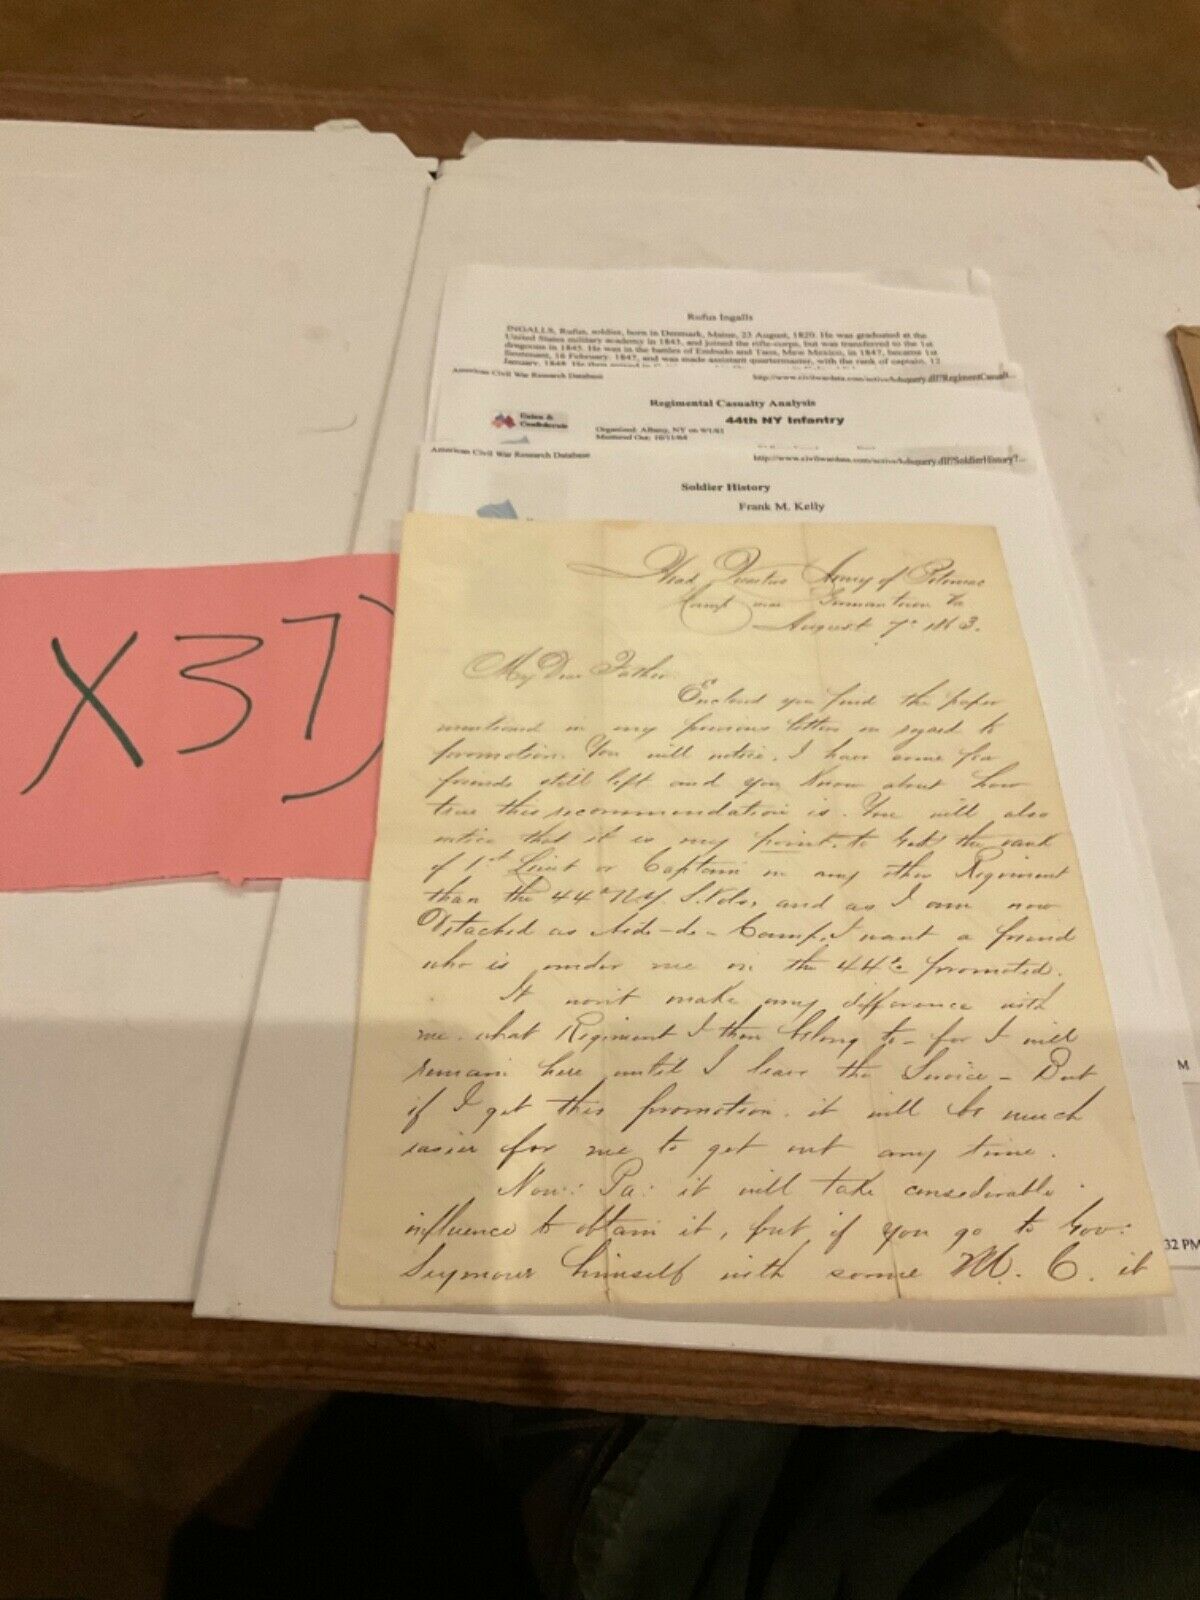 Rufus Ingalls
INGALLS, Rufus, soldier, born in Denmark, Maine, 23 August, 1820. He was graduated at the
United States military academy in 1843, and joined the rifle-corps, but was transferred to the 1st
dragoons in 1845. He was in the battles of Embudo and Taos, New Mexico, in 1847, became 1st
lieutenant, 16 February, 1847, and was made assistant quartermaster, with the rank of captain, 12
January, 1848.
American Civil War Research Database
Regimental Casualty Analysis
Union &
Confederate
44th NY Infantry
Organized: Albany, NY on 9/1/61
Mustered Out: 10/11/64
American Civil War Research Database
Soldier History
Frank M. Kelly
X37)
Head Quarters Army of Potomac
Camp near Germantown Va
August 7th 1863.
My Dear Father
Enclosed you find the paper
mentioned in my previous letters in regard to
promotion. You will notice, I have some few
friends still left and you know about how
true this recommendation is. You will also
notice that it is my point, to get the rank
of 1st Lieut or Captain in any other Regiment
than the 44th N.Y. S. Vols, and as I am now
Detached as Aide-de-Camp, I want a friend
who is under me in the 44th promoted.
It wont make any difference with
me what Regiment I then belong to - for I will
remain here until I leave the Service - But
if I get this promotion. it will be much
easier for me to get out any time.
Now: Pa: it will take considerable
influence to obtain it, but if you go to Gov:
Seymour himself with some M. C. it
M
32 PM